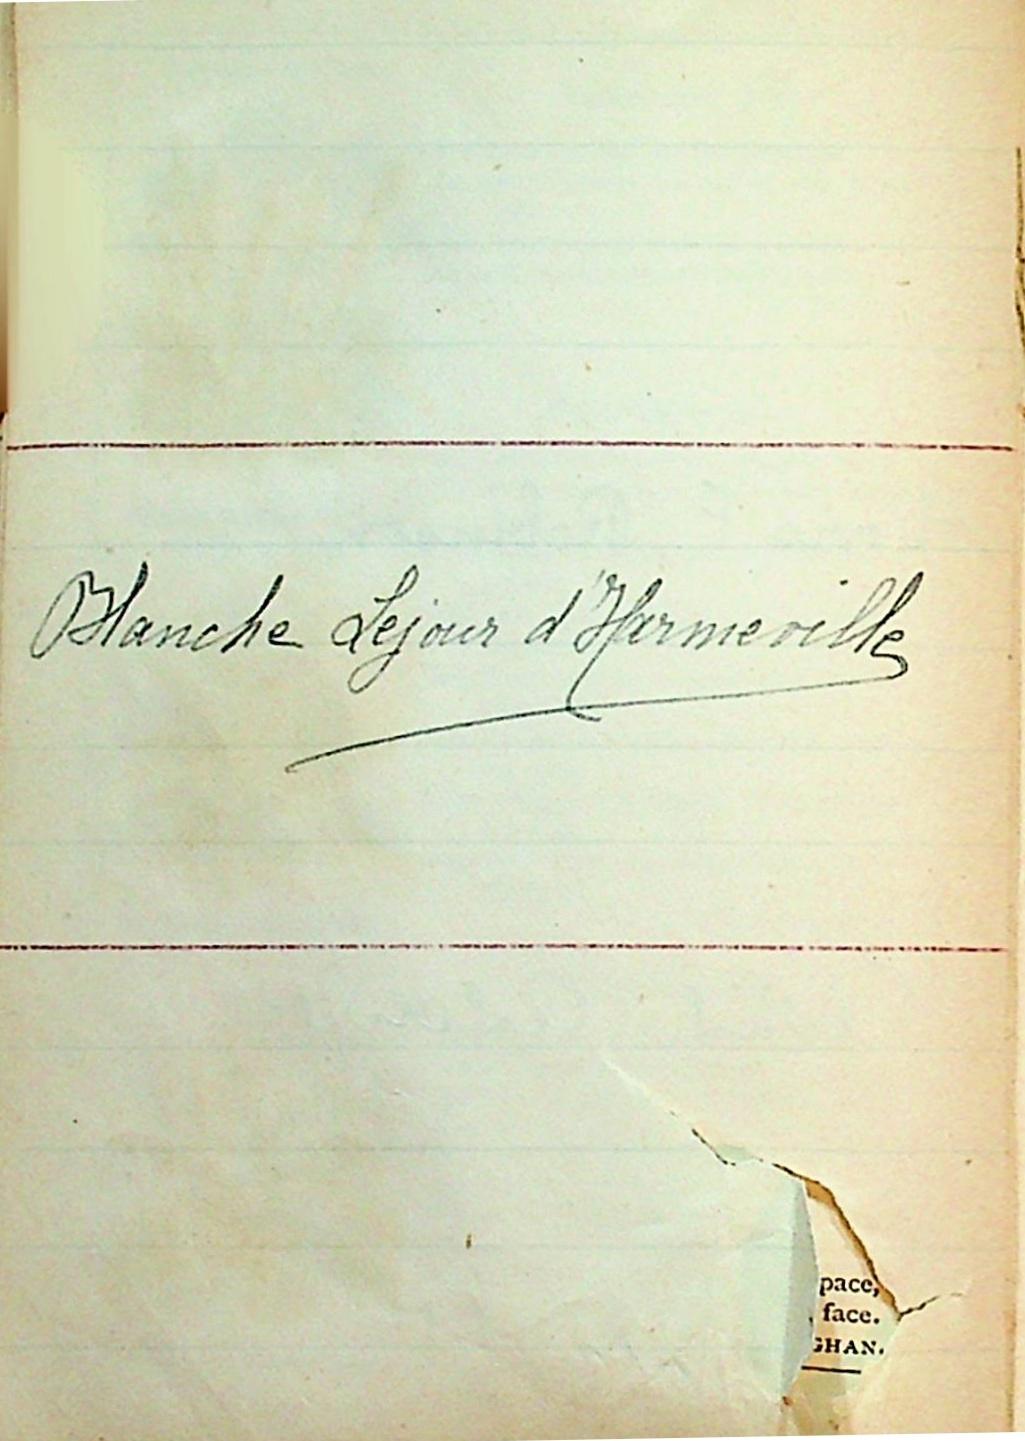 Blanche Lejour d'Harmeville
pace,
face.
GHAN.